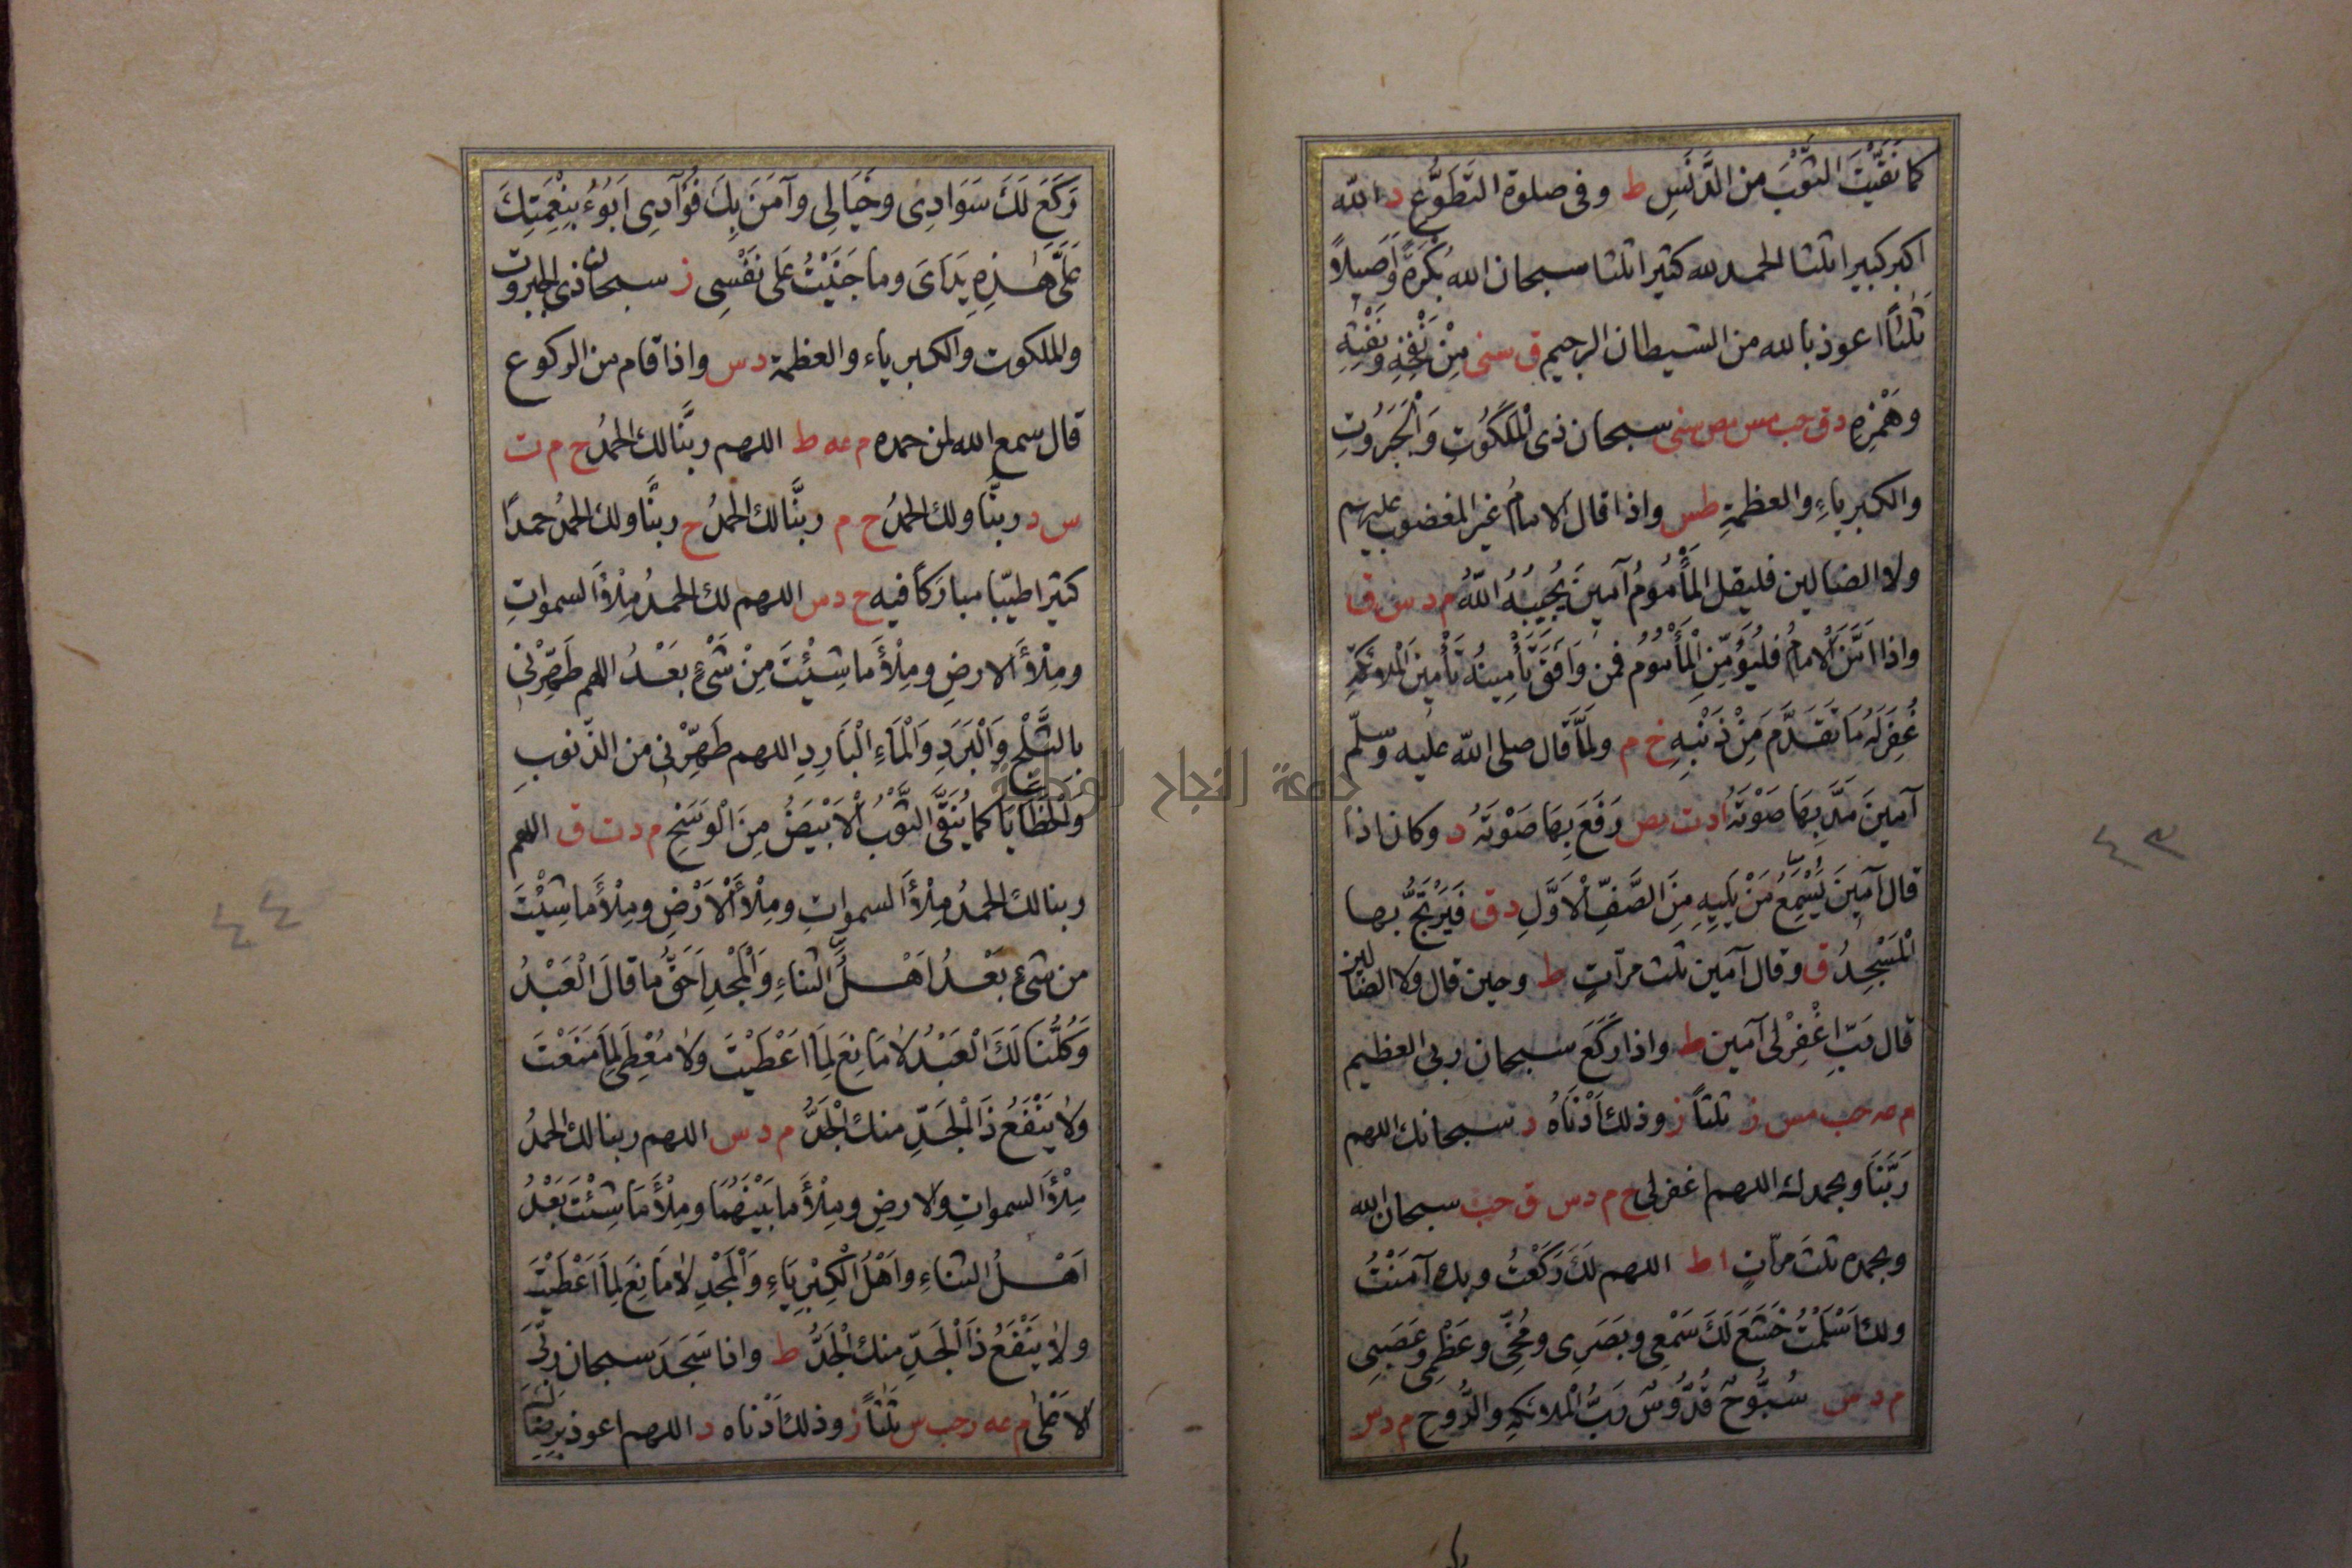 كما نَقَّيْتَ الثَّوْبَ من الدَّنَسِ ط وفى صلوة التَّطَوُّعِ د الله
اكبر كبيرا ثلثا الحمد لله كثيرا ثلثا سبحان الله بُكْرَةً وَاَصِيلاً
ثَلٰثًا اعوذ بالله من الشيطان الرجيم ق سنى مِنْ نَفْخِهِ وَنَفْثِهِ
وهَمْزِهِ د ق حب مس مص سنى سبحان ذى الْمَلَكُوتِ وَالْجَبَرُوتِ
والكبرياءِ والعظمةِ طس واذا قال الامامُ غير المغضوب عليهم
ولا الضالين فليقل الْمَأْمُومُ آمينَ يُجِبْهُ اللّهُ م د س ق
واذا اَمَّنَ الْاِمامُ فليُؤَمِّنِ الْمَأْمُومُ فمن وَافَقَ تَأْمِينُهُ تَأْمِينَ الْمَلٰائكةِ
غُفِرَ لَهُ مَا تَقَدَّمَ مِنْ ذَنْبِهِ خ م ولَمَّا قال صلى اللّه عليه وسلّم
آمينَ مَدَّ بِهَا صَوْتَهُ ا د ت مص رَفَعَ بِهَا صَوْتَهُ د وكان اذا
قال آمِينَ يُسْمِعُ مَنْ يَلِيهِ مِنَ الصَّفِّ الْاَوَّلِ د ق فَيَرْتَجُّ بها
الْمَسْجِدُ ق وقال آمين ثلث مرّاتٍ ط وحين قال ولا الضالين
قال رَبِّ اغْفِرْ لى آمين ط واذا رَكَعَ سبحان ربى العظيم
م عه حب مس ز ثلثاً ز وذلك اَدْنَاهُ د سبحانك اللهم
رَبَّنَا وبحمدك اللهم اغفر لى خ م د س ق حب سبحان الله
وبحمده ثلثَ مرّاتٍ ا ط اللهم لَكَ رَكَعْتُ وبك آمَنْتُ
ولك اَسْلَمْتُ خَشَعَ لَكَ سَمْعِى وبَصَرِى ومُخِّى وعَظْمِى وعَصَبِى
م د س سُبُّوحٌ قُدُّوسٌ رَبُّ الْملائكةِ والرُّوحِ م د س
٤٣
رَكَعَ لَكَ سَوَادِى وخَيَالِى وآمَنَ بِكَ فُؤَآدِى اَبُوءُ بِنِعْمَتِكَ
عَلَىَّ هٰذِهِ يَدَاىَ وما جَنَيْتُ عَلى نَفْسِى ز سبحان ذى الجبروت
والملكوت والكبرياء والعظمة د س واذا قام من الركوع
قال سمع الله لمن حمده م عه ط اللهم ربَّنا لك الحمدُ خ م ت
س د ربنَّا ولك الحمدُ خ م ربنَّا لك الحمدُ خ ربنَّا ولك الحمدُ حمدًا
كثيرا طيّبًا مباركًا فيه خ د س اللهم لك الحمدُ مِلْؤَ السمواتِ
ومِلْؤَ الارضِ ومِلْؤَ ما شِئْتَ مِنْ شَىْءٍ بَعْدُ اللهم طَهِّرْنى
بالثَّلْجِ وَالْبَرَدِ وَالْمَاءِ الْبَارِدِ اللهم طَهِّرْنى من الذّنوبِ
وَالْخَطَايَا كما يُنَقَّى الثَّوْبُ الْاَبْيَضُ مِنَ الْوَسَخِ م د ت ق اللهم
ربنا لك الحمدُ مِلْؤَ السمواتِ ومِلْؤَ الْاَرْضِ ومِلْؤَ ما شِئْتَ
من شىءٍ بَعْدُ اَهْلُ الثناءِ وَالْمَجْدِ اَحَقُّ ما قالَ الْعَبْدُ
وَكُلُّنَا لَكَ الْعَبْدُ لا مَانِعَ لِمَا اَعْطَيْتَ ولا مُعْطِىَ لِمَا مَنَعْتَ
ولا يَنْفَعُ ذَا الْجَدِّ منك الْجَدُّ م د س اللهم ربنا لك الحمدُ
مِلْؤَ السمواتِ والارضِ ومِلْؤَ ما بَيْنَهُمَا ومِلْؤَ مَا شِئْتَ بَعْدُ
اَهْلُ الثناءِ واَهْلُ الْكِبْرِيَاءِ وَالْمَجْدِ لا مَانِعَ لِمَا اَعْطَيْتَ
ولا يَنْفَعُ ذَا الْجَدِّ منك الْجَدُّ ط واذا سَجَدَ سبحان ربِّىَ
الاَعْلٰى م عه ر حب س ثَلٰثاً ز وذلك اَدْناه د اللهم اعوذ بِرِضَاكَ
٤٤
جامعة النجاح الوطنية